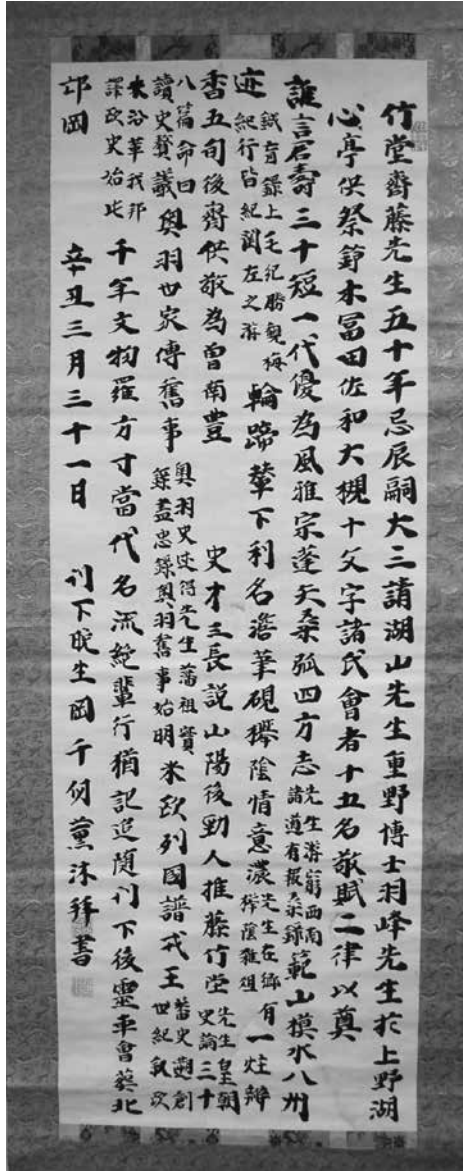 竹堂齋藤先生五十年忌辰嗣大三請湖山先生重野博士羽峰先生於上野湖
心亭供祭節木冨田佐和大槻十文字諸氏會者十五名敬賦二律以奠
誰言君壽三十短一代優為風雅宗蓬矢桑弧四方志先生游蹤西南諸道有報桑錄範山模水八州
迹鍼肓錄上毛紀勝観梅紀行皆紀関左之游輪蹄輦下利名澹筆硯穉陰情意濃先生在郷穉陰雜俎有一炷瓣
香五旬後齋供敬為曽南豊 史才三長説山陽後勁人推藤竹堂先生皇朝史論三十
八篇命曰讀史贅議奥羽世家傳舊事奥羽史迹得先生藩祖實錄盡忠錄奥羽舊事始明米欧列國譜戎王蕃史遡創世紀叙次
米洛華我邦譯欧史始此千年文物羅方寸當代名流絶輩行猶記追随刊下後靈車會葬北
邙岡 辛丑三月三十一日 刊下晩生岡千仞薫沐拜書